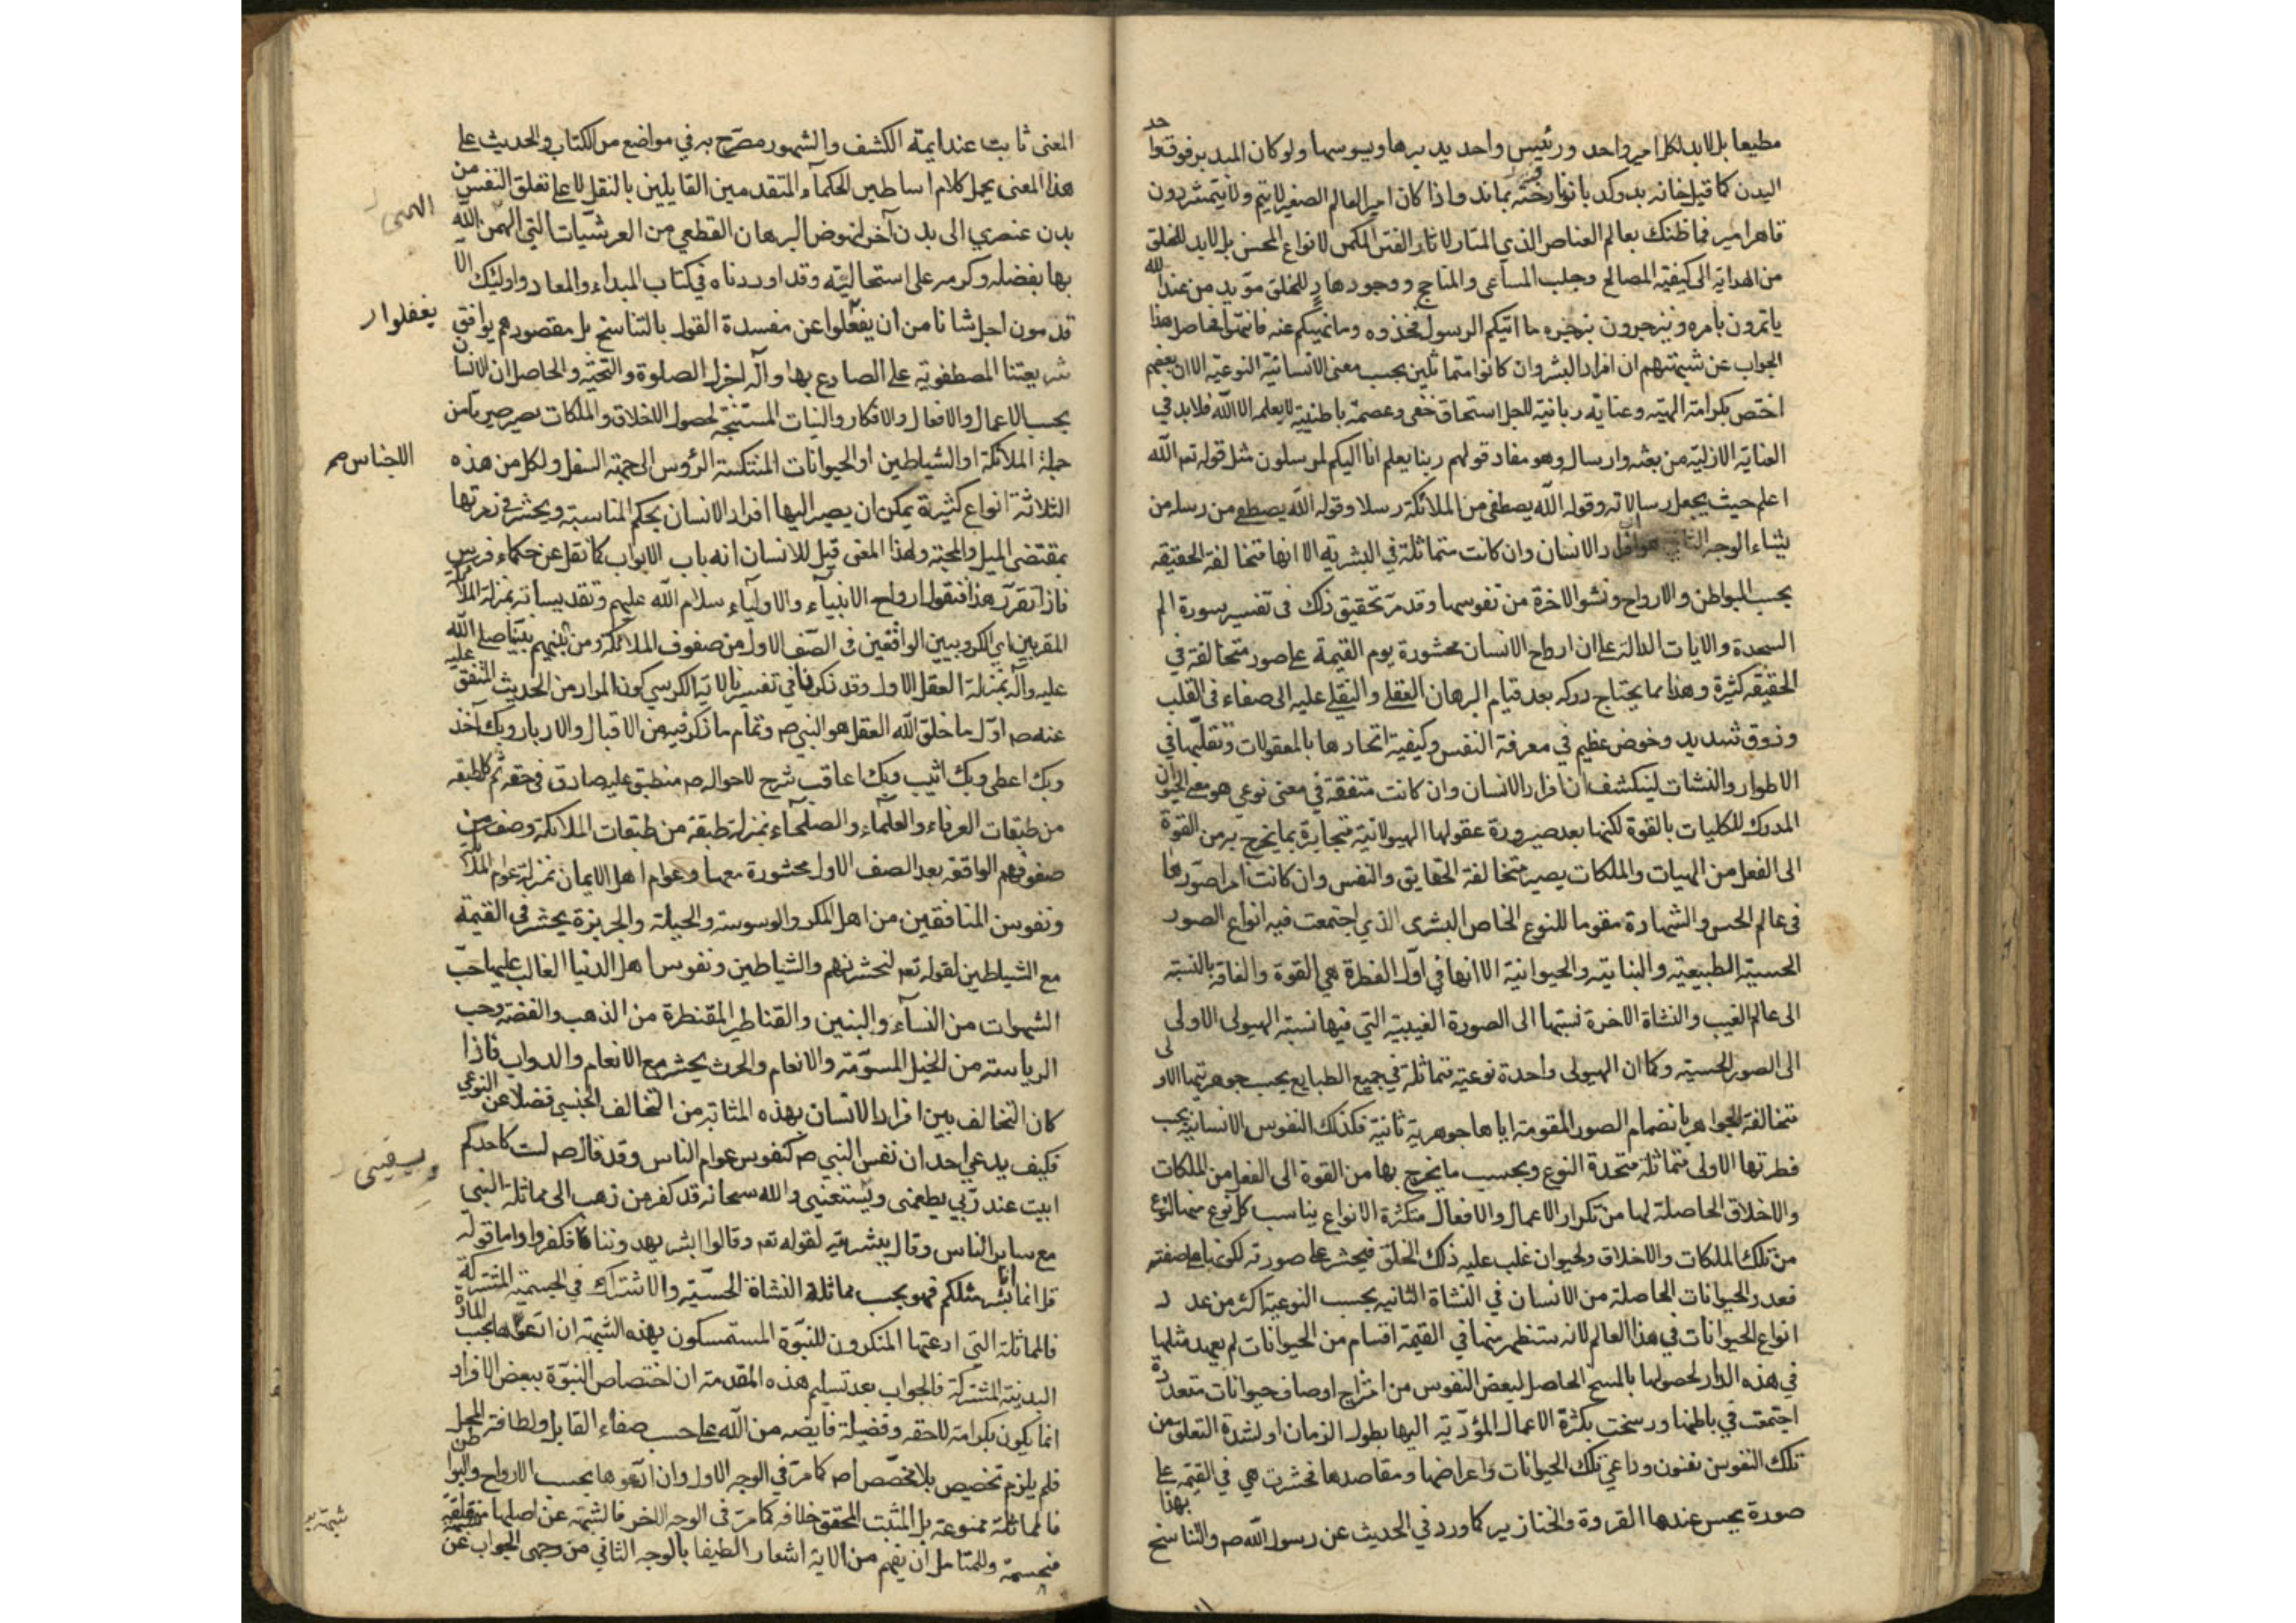 مطيعا بل لابد لكل امير واحد ورئيس واحد يدبرها ويسوسها ولو كان المدبر فوق واحد
البدن كما قيل خانه بدو كدبانو نارفته بماند واذا كان امير العالم الصغير لا يتم ولا يتمشى دون
قاهر امير فما ظنك بعالم العناصر الذي المثار لاثار الفتن المكمن لانواع المحن بل لابد للخلق
من الهداية الى كيفية المصالح وجلب المساعى والمناجح ووجود هادٍ للخلق مؤيد من عند الله
ياتمرون بامره وينزجرون بزجره ما اتيكم الرسول فخذوه وما نهيكم عنه فانتهوا فحاصل هذا
الجواب عن شبهتهم ان افراد البشر وان كانوا متماثلين بحسب معنى الانسانية النوعية الا ان بعضهم
اختص بكرامة الهية وعناية ربانية لاجل استحقاق خفى وعصمة باطنية لا يعلمه الا الله فلا بد في
العناية الازلية من بعثه وارساله وهو مفاد قولهم ربنا يعلم انا اليكم لمرسلون مثل قوله تعم الله
اعلم حيث يجعل رسالاته وقوله الله يصطفى من الملائكة رسلا وقوله الله يصطفى من رسله من
يشاء الوجه الثانى هو افراد الانسان وان كانت متماثلة في البشرية الا انها متخالفة الحقيقه
بحسب البواطن والارواح ونشو الاخرة من نفوسها وقد مر تحقيق ذلك فى تفسير سورة الم
السجدة والايات الدالة على ان ارواح الانسان محشورة يوم القيمة على صور متخالفة في
الحقيقه كثيرة وهذا مما يحتاج دركه بعد قيام البرهان العقلى والنقلى عليه الى صفاء فى القلب
وذوق شديد وخوض عظيم في معرفة النفس وكيفية اتحادها بالمعقولات وتقلبها في
الاطوار والنشات لينكشف ان افراد الانسان وان كانت متفقة في معنى نوعى هو معنى الحيوان
المدرك للكليات بالقوة لكنها بعد صيرورة عقولها الهيولانية متجايرة بما يخرج به من القوة
الى الفعل من الهيات والملكات يصير متخالفة الحقايق والنفس وان كانت امرا صوريا
فى عالم الحس والشهادة مقوما للنوع الخاص البشرى الذي اجتمعت فيه انواع الصور
الحسية الطبيعية والنباتية والحيوانية الا انها في اول الفطرة هي القوة والفاقة بالنسبة
الى عالم الغيب والنشاة الاخرة نسبتها الى الصورة الغيبية التي فيها نسبة الهيولى الاولى
الى الصور الحسية وكما ان الهيولى واحدة نوعية متماثلة في جميع الطبايع بحسب جوهريتها الاولى
متخالفة الجواهر بانضمام الصور المقومة اياها جوهرية ثانية فكذلك النفوس الانسانية بحسب
فطرتها الاولى متماثلة متحدة النوع وبحسب ما يخرج بها من القوة الى الفعل من الملكات
والاخلاق الحاصلة لها من تكرار الاعمال والافعال متكثرة الانواع يناسب كل نوع منها لنوع
من تلك الملكات والاخلاق ولحيوان غلب عليه ذلك الخلق فيحشر على صورته لكونها على صفته
فعدد الحيوانات الحاصلة من الانسان في النشاة الثانيه بحسب النوعية اكثر من عدد
انواع الحيوانات في هذا العالم لانه ستظهر منها في القيمة اقسام من الحيوانات لم يعهد مثلها
في هذه الدار لحصولها بالمسخ الحاصل لبعض النفوس من امتزاج اوصاف حيوانات متعددة
اجتمعت في باطنها ورسخت بكثرة الاعمال المؤدية اليها بطول الزمان او لشدة التعلق من
تلك النفوس بفنون دواعي تلك الحيوانات واعراضها ومقاصدها فحشرت هي في القيمة على
صورة يحسن عندها القردة والخنازير كما ورد في الحديث عن رسول الله صم والتناسخ بهذا
المعنى ثابت عند ايمة الكشف والشهود مصرح به في مواضع من الكتاب والحديث على
هذا المعنى يحمل كلام اساطين الحكمآء المتقدمين القايلين بالنقل لا على تعلق النفس من
بدن عنصري الى بدن آخر لنهوض البرهان القطعي من العرشيات التي الهمن الله
الهمنى
بها بفضله وكرمه على استحاليته وقد اوردناه في كتاب المبداء والمعاد واولئك الا
قدمون اجل شانا من ان يغفلوا عن مفسدة القول بالتناسخ بل مقصودهم يوافق
يغفلوا
شريعتنا المصطفوية على الصادع بها وآله اجزل الصلوة والتحية والحاصل ان الانسان
بحسب الاعمال والافعال والافكار والنيات المستتبعة لحصول الاخلاق والملكات يصير صيريا من
جملة الملائكة او الشياطين او الحيوانات المنتكسة الرؤس الى جهة السفل ولكل من هذه
الاجناس صح
الثلاثة انواع كثيرة يمكن ان يصير اليها افراد الانسان بحكم المناسبة ويحشر فى زمرتها
بمقتضى الميل والمحبة ولهذا المعنى قيل للانسان انه باب الابواب كما نقل عن حكماء فرس
فاذا تقرر هذا فنقول ارواح الانبيآء والاوليآء سلام الله عليهم وتقديساته بمنزلة الملائكة
المقربين اي الكروبيين الواقفين فى الصف الاول من صفوف الملائكة ومن بينهم نبينا صلى الله عليه
عليه وآله بمنزلة العقل الاول وقد ذكرنا في تفسيرنا لاية الكرسي كون المراد من الحديث المتفق
عنه صم اول ما خلق الله العقل هو النبي صم وتمام ما ذكر فيه من الاقبال والادبار وبك آخذ
وبك اعطى وبك اثيب وبك اعاقب شرح لاحواله صم منطبق عليه صادق فى حقه ثم كل طبقه
من طبقات العرفاء والعلمآء والصلحآء بمنزلة طبقة من طبقات الملائكة وصف من
صفوفهم الواقفه بعد الصف الاول محشورة معها وعوام اهل الايمان بمنزلة عوام الملائكة
ونفوس المنافقين من اهل المكر والوسوسة والحيلة والجربزة يحشر فى القيمة
مع الشياطين لقوله تعم لنحشرنهم والشياطين ونفوس اهل الدنيا الغالب عليها حب
الشهوات من النسآء والبنين والقناطير المقنطرة من الذهب والفضة وحب
الرياسة من الخيل المسومة والانعام والحرث يحشر مع الانعام والدواب فاذا
كان التخالف بين افراد الانسان بهذه المثابة من التخالف الجنسي فضلا عن النوعي
فكيف يدعي احد ان نفس النبي صم كنفوس عوام الناس وقد قال صم لست كاحدكم
ابيت عند ربي يطعمنى ويستغنيني والله سبحانه قد كفر من ذهب الى مماثلة النبي
ويسقينى
مع ساير الناس وقال ببشريته لقوله تعم وقالوا ابشر يهدوننا فكفروا واما قوله
قل انما انا بشر مثلكم فهو بحسب مماثلة النشاة الحسية والاشتراك في الجسمية المشتركة
فالمماثلة التي ادعتها المنكرون للنبوة المستمسكون بهذه الشبهة ان ادعوها بحسب المادة
البدنية المشتركة فالجواب بعد تسليم هذه المقدمة ان اختصاص النبوة ببعض الافراد
انما يكون بكرامة لاحقه وفضيلة فايضه من الله على حسب صفاء القابل ولطافة المحل
فلم يلزم تخصيص بلا مخصص كما مر في الوجه الاول وان ادعوها بحسب الارواح والبواطن
فالمماثلة ممنوعة بل المثبت المحقق خلافه كما مر فى الوجه الاخر فالشبهة عن اصلها منقلعة
منحسمة وللمتامل ان يفهم من الاية اشعارا لطيفا بالوجه الثاني من وجهى الجواب عن